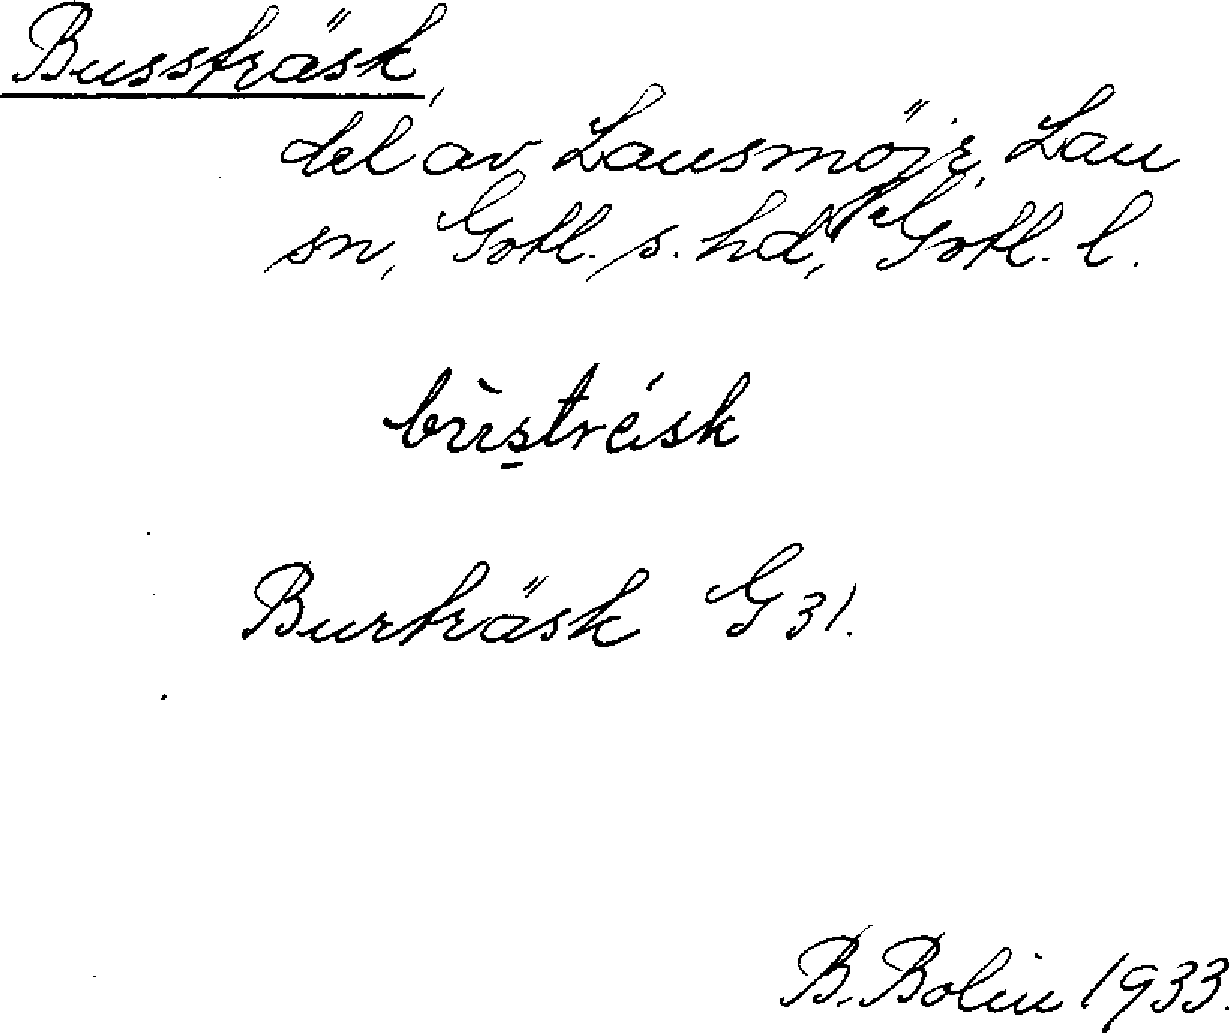 Bussträsk,
del av Lausmöjr, Lau
sn, Gotl. s. hd, Gotl. l.
bùs̱trésk
Burträsk G 31.
B. Bolin 1933.